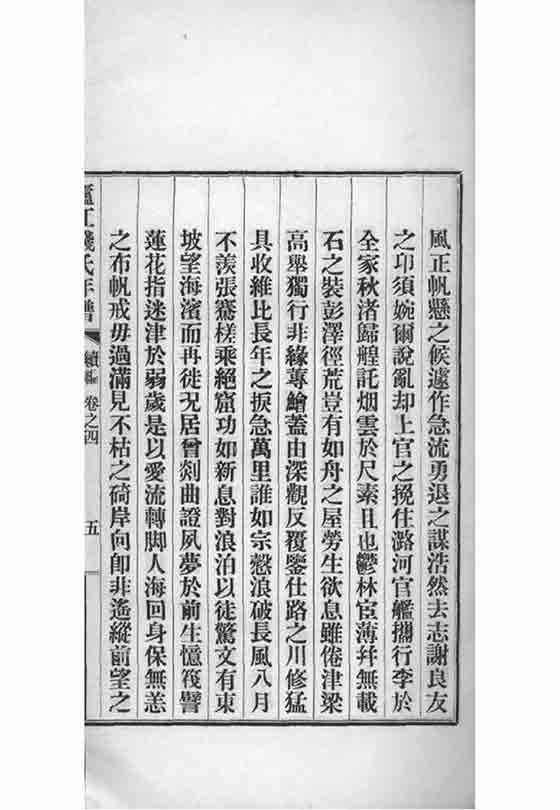 風正帆懸之候遽作急流勇退之謀浩然去志謝良友
之卭須婉爾說亂却上官之挽住潞河官艦攜行李於
全家秋渚歸艎託烟雲於尺素且也鬱林宦薄幷無載
石之裝彭澤徑荒豈有如舟之屋勞生欲息雖倦津梁
高舉獨行非緣蓴鱠蓋由深觀反覆鑒仕路之川修猛
具收維比長年之捩急萬里誰如宗慤浪破長風八月
不羨張騫槎乘絕窟功如新息對浪泊以徒驚文有東
坡望海濱而再徙况居曾剡曲證夙夢於前生憶筏譬
蓮花指迷津於弱歲是以愛流轉脚人海回身保無恙
之布帆戒毋過滿見不枯之碕岸向卽非遙縱前望之
廬江錢氏年譜 續編 卷之四 五